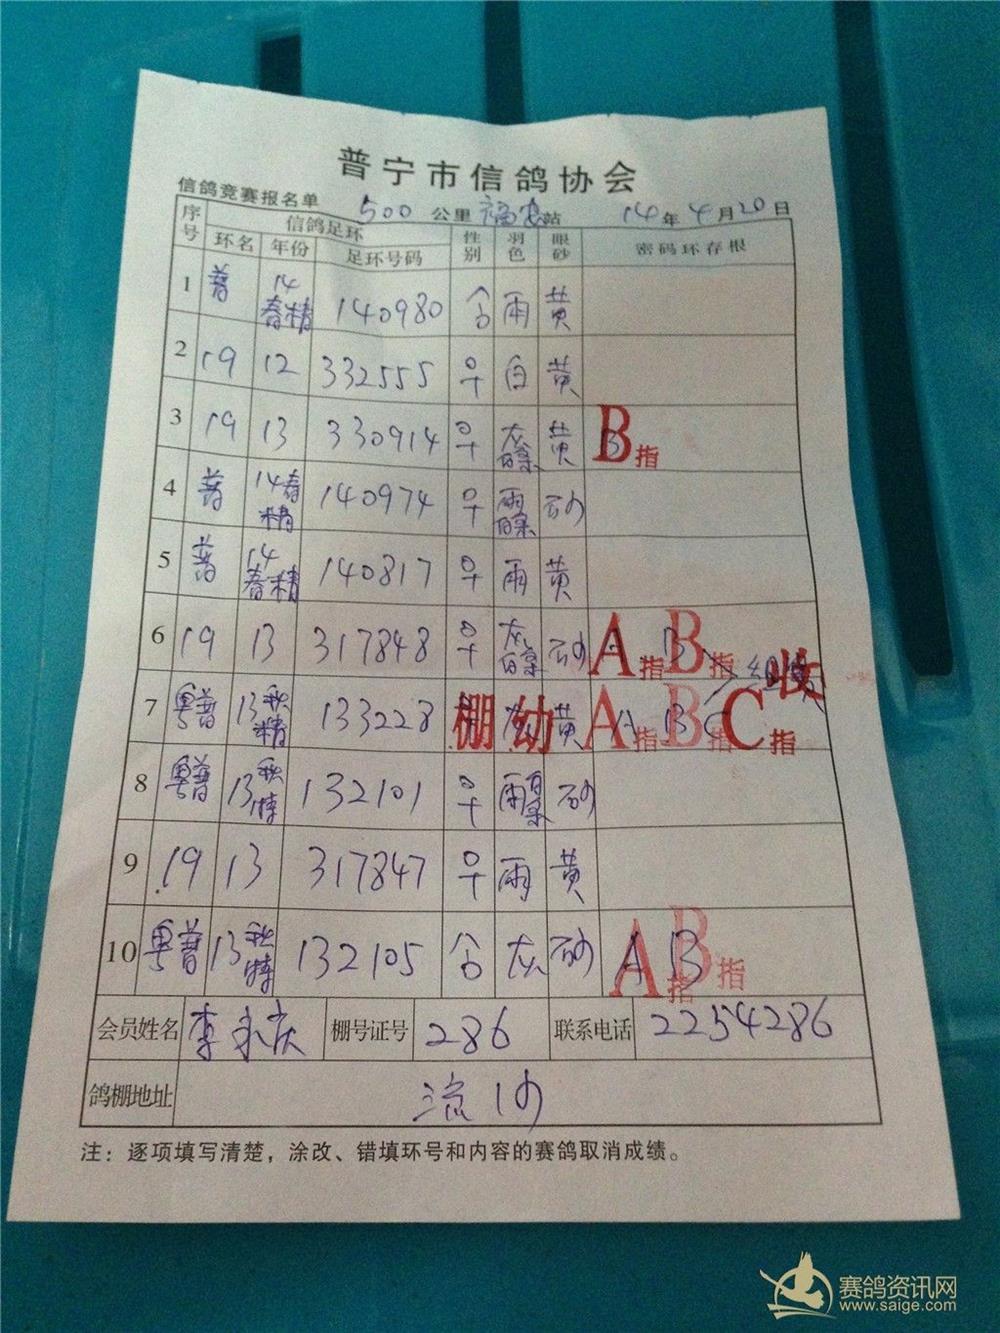 普宁市信鸽协会
信鸽竞赛报名单 500 公里 福安 站 14 年 4 月 20 日
序号 信鸽足环 性别 羽色 眼砂 密码环存根
环名 年份 足环号码
1 普 14春精 140980 雨 黄
2 19 12 332555 白 黄
3 19 13 330914 灰 黄 B指
4 普 14春精 140974 雨 砂
5 普 14春精 140817 雨 黄
6 19 13 317848 灰 砂 A指 B指 收
7 粤普 13秋精 133228 棚 幼 黄 A指 B指 C指
8 粤普 13秋特 132101 雨 砂
9 19 13 317847 雨 黄
10 粤普 13秋特 132105 灰 砂 A指 B指
会员姓名 李永庆 棚号证号 286 联系电话 2254286
鸽棚地址 流沙
注：逐项填写清楚，涂改、错填环号和内容的赛鸽取消成绩。
赛鸽资讯网
www.saige.com